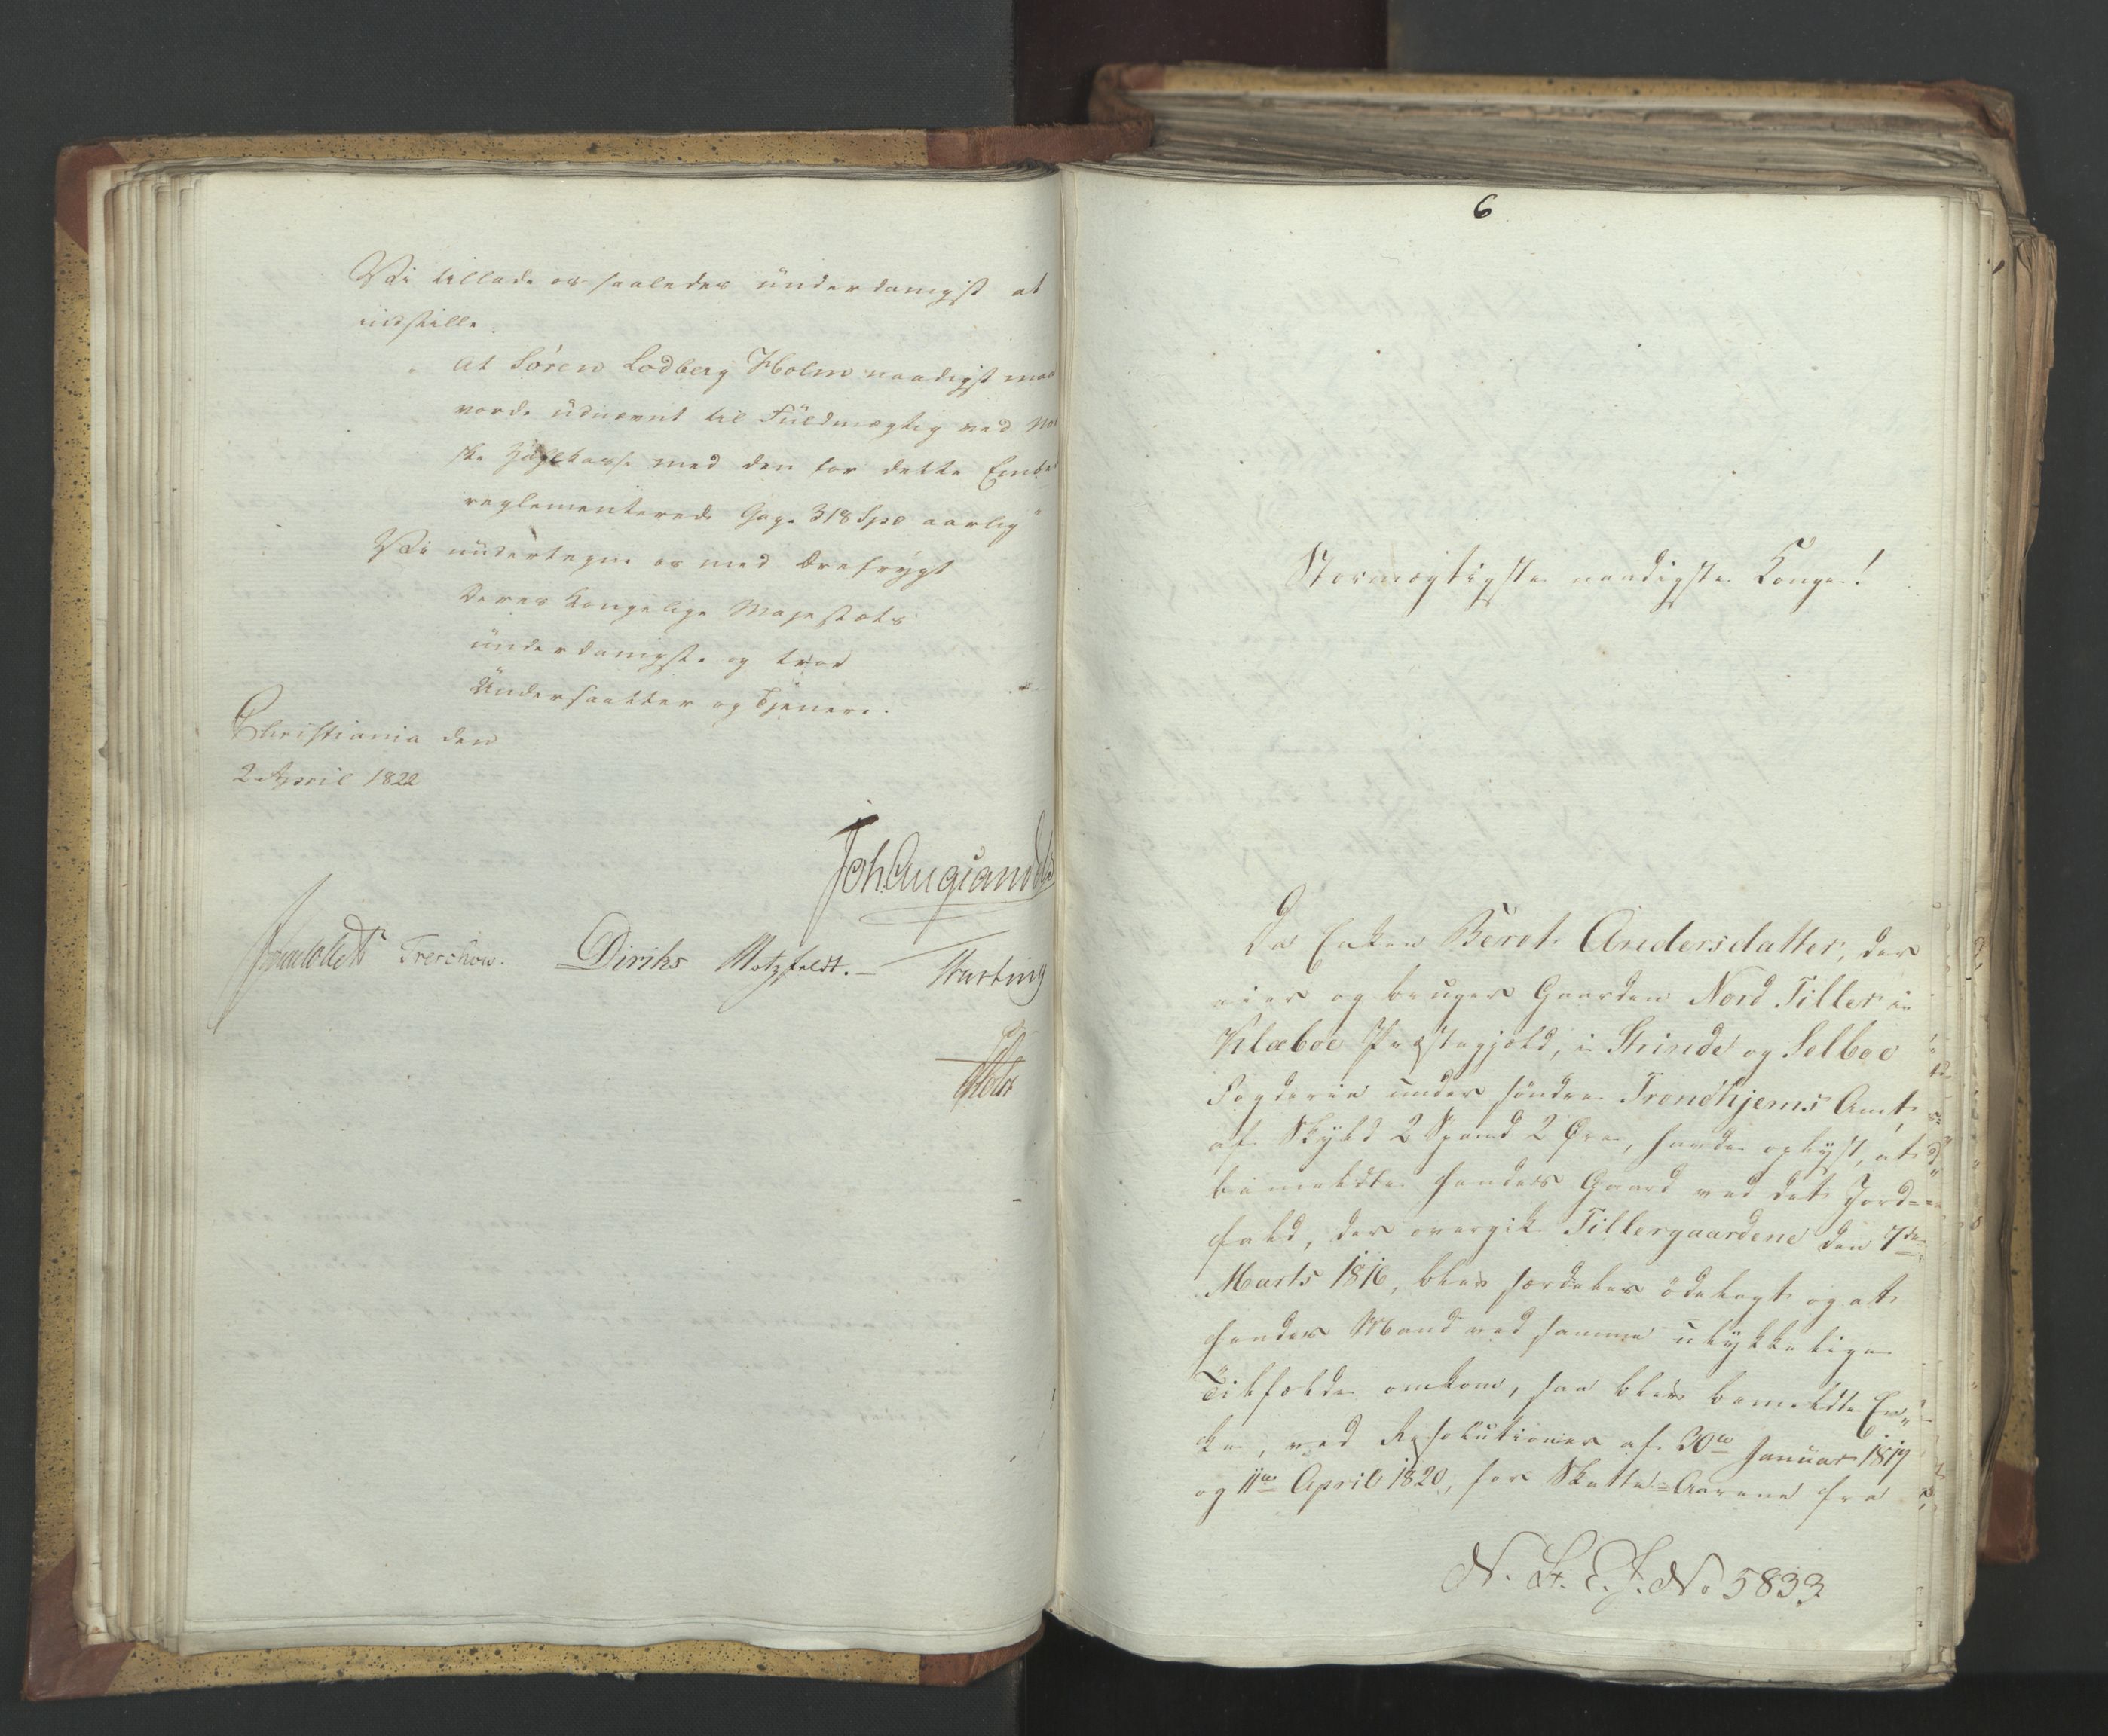 Vi tillade os saaledes underdanigst at
indstille.
at Søren Lodberg Holm naadigst maa
vorde udnævnt til Fuldmægtig ved Nor
ske med den for dette Embe
reglementerede Gage 318 Spd aarlig"
Vi undertegne os med Ærefrygt
Deres Kongelige Majestæts
underdanigste og troe
Undersaatter og Tjenere.
Christiania den
2 April 1822
Treschow. Diriks Motzfeldt. –
Holst
6
Stormægtigste naadigste Konge!
Da Enken Beret Andersdatter, der
eier og bruger Gaarden Nord Tiller in
Klæboe Præstegjeld, i Strinde og Selboe
Fogderie under søndre Trondhjems Amt,
af Skyld 2 Spand 2 Øre, havde oplyst, at
bemeldte hendes Gaard ved det Jord-
fald, der overgik Tillergaardene den 7de
Marts 1816, blev særdeles ødelagt og at
hendes Mand ved samme ulykkelige
Tilfælde omkom, saa blev bemeldte En„
ke, ved Resolutioner af 30te Januar 1819
og 11te April 1820, for Skatte-Aarene fra
N. F. E. J. No 5833